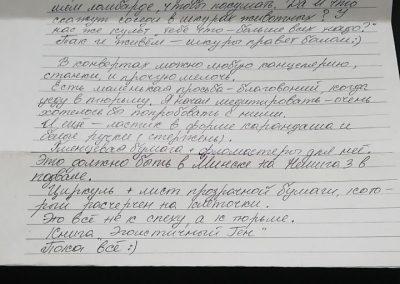 шем ломбарде, чтобы послушать. Да и что
скажут соседи в шкурах животных? У
нас же культ "тебе что - больше всех надо?"
Так и живём - шкуры правят балом :)
В конвертах можно любую канцелярию,
стикки, и прочую мелочь.
Есть маленькая просьба - благовоний, когда
уеду в тюрьму. Я начал медитировать - очень
хотелось бы попробовать с ними.
И ещё - ластик в форме карандаша и
белой ручки (стержень).
бумага + фломастеры для неё.
Это должно быть в Минске на Немига 3 в
подвале.
Циркуль + лист прозрачной бумаги, кото-
рый расчерчен на клеточки.
Это всё не к спеху, а к тюрьме.
Книга "Эгоистичный Ген."
Пока всё :)